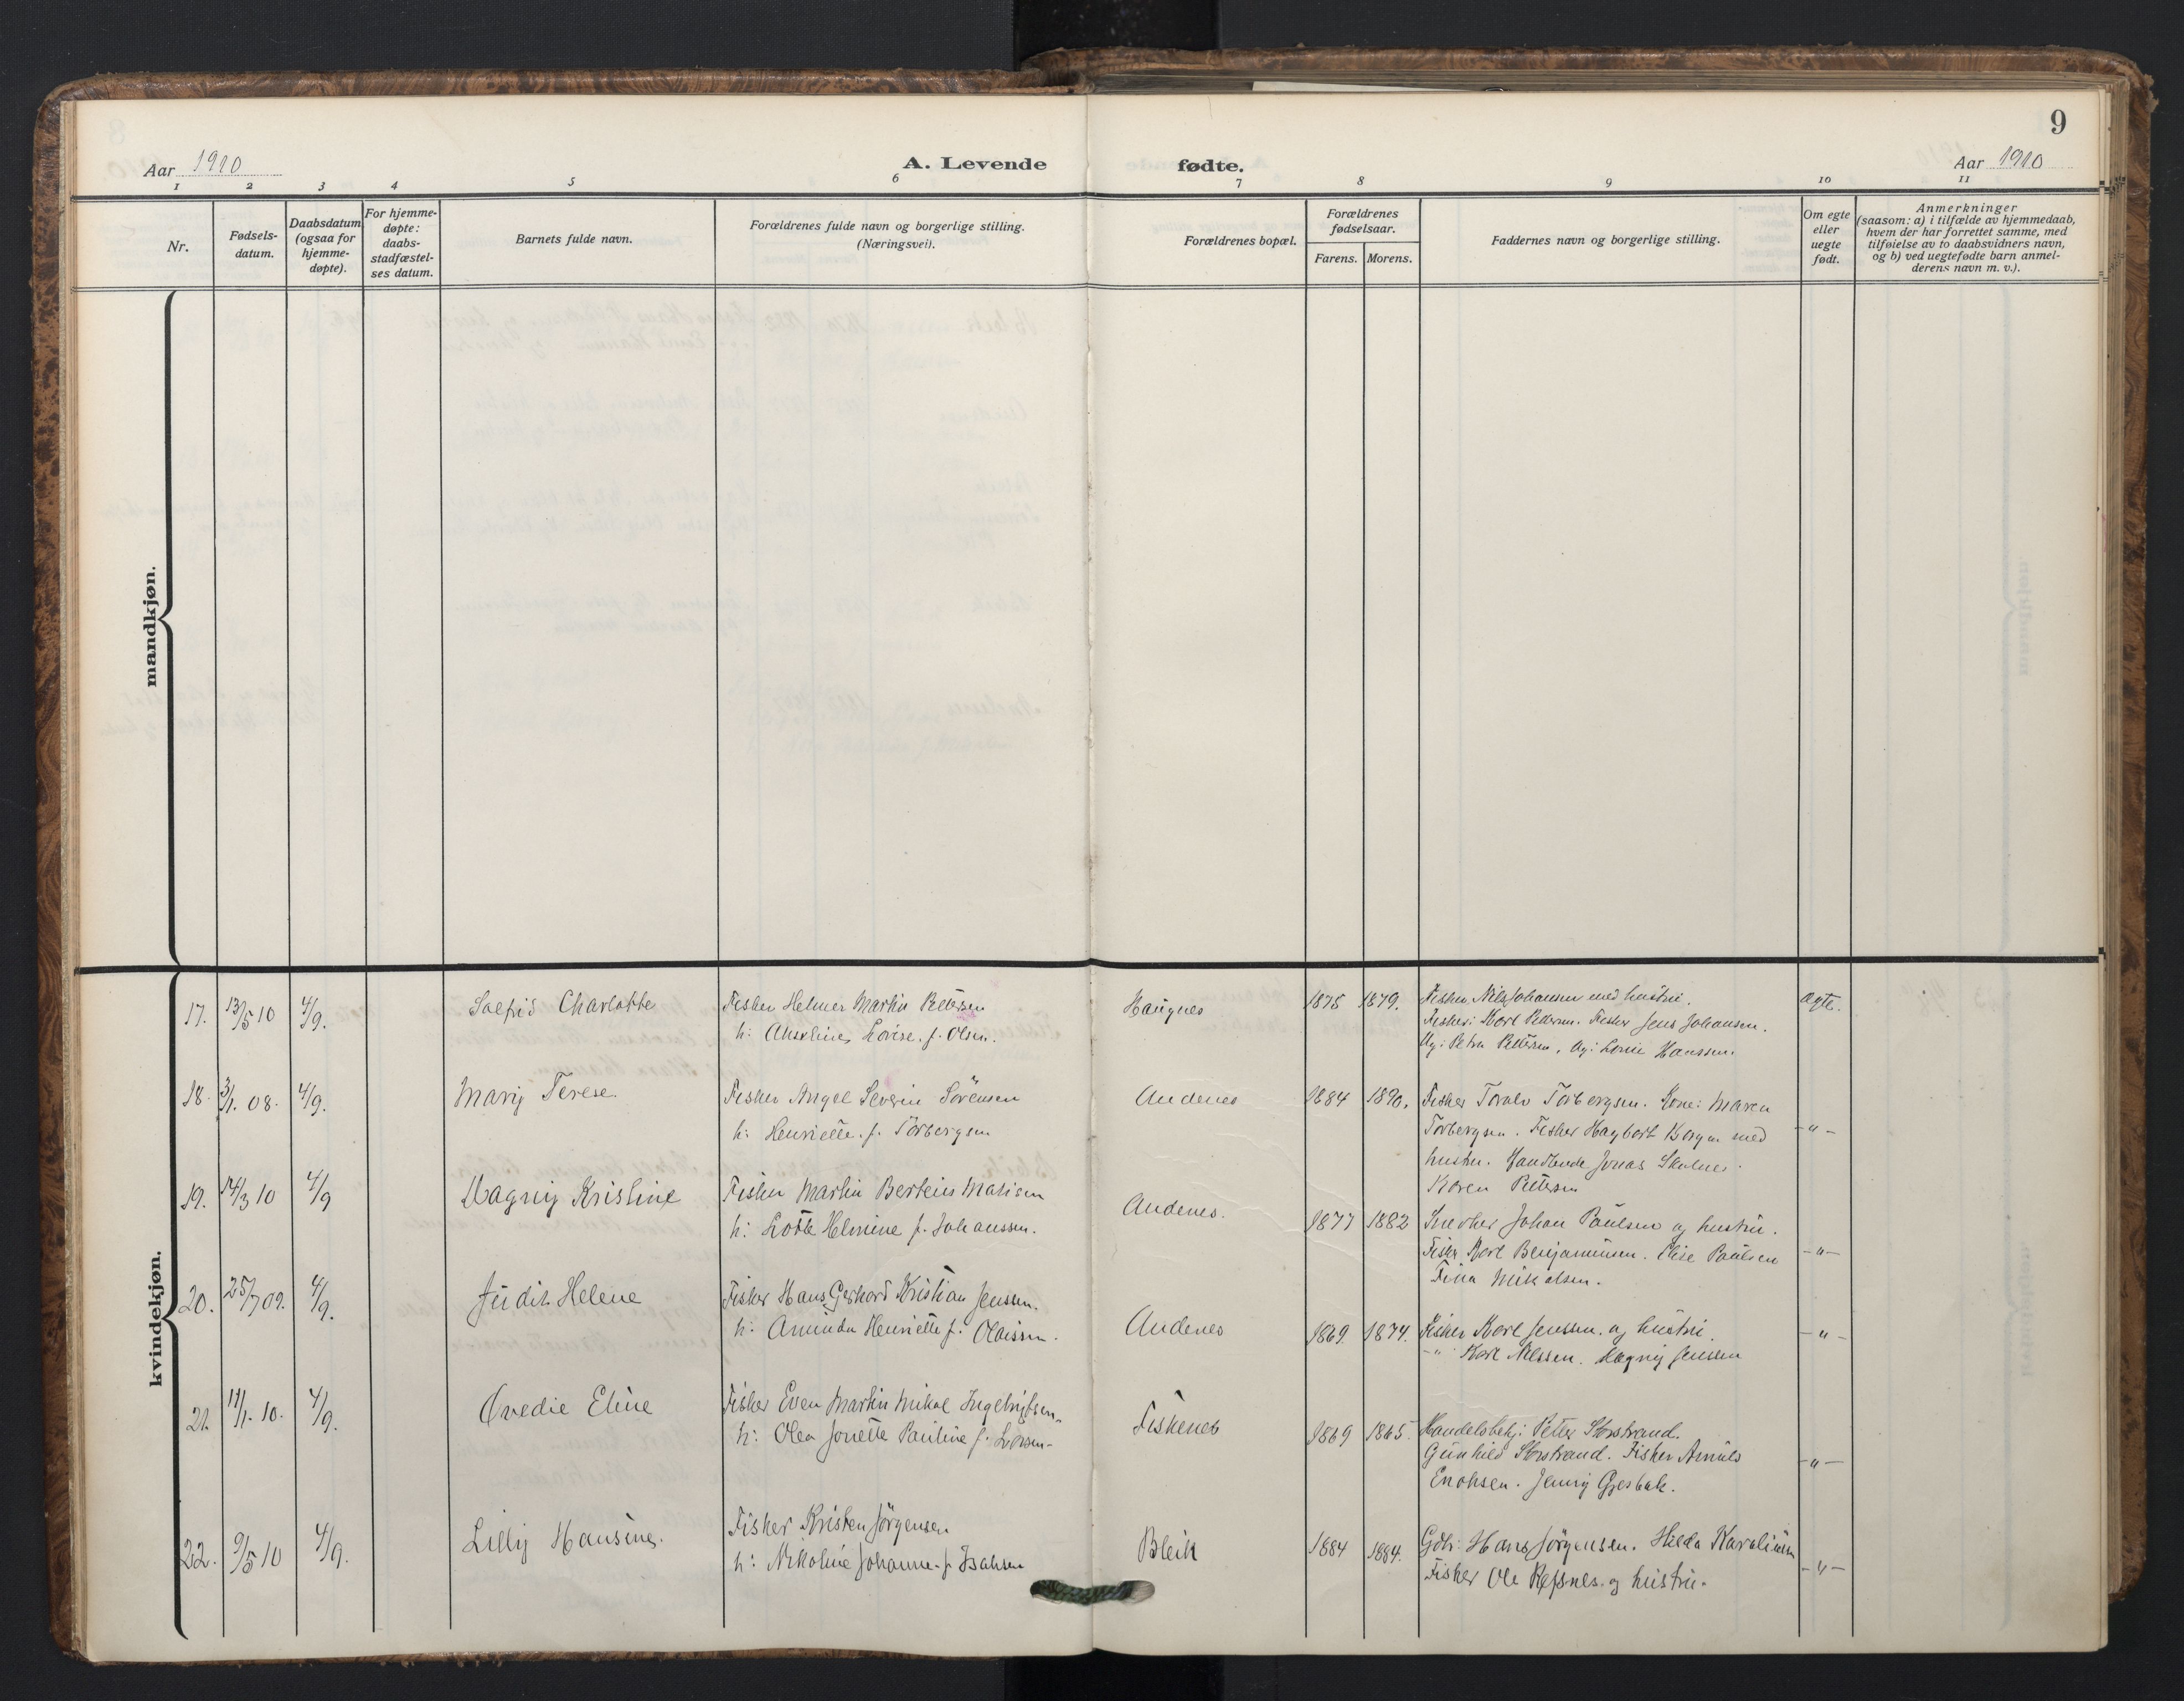 9
Aar 1910 A. Levende fødte. Aar 1910
1 2 3 4 5 6 7 8 9 10 11
Nr.
Fødsels-
datum.
Daabsdatum
(ogsaa for
hjemme-
døpte).
For hjemme-
døpte:
daabs-
stadfæstel-
ses datum.
Barnets fulde navn.
Forældrenes fulde navn og borgerlige stilling.
(Næringsvei).
Forældrenes bopæl.
Forældrenes
fødselsaar.
Farens. Morens.
Faddernes navn og borgerlige stilling.
Om egte
eller
uegte
født.
Anmerkninger
(saasom: a) i tilfælde av hjemmedaab,
hvem der har forrettet samme, med
tilføielse av to daabsvidners navn,
og b) ved uegtefødte barn anmel-
derens navn m. v.).
mandkjøn.
kvindekjøn.
17. 13/5 10 4/9. Solfrid Charlotte
Fisker Helmer Martin Pettersen
h: Anseline Lovise f. Olsen.
Haugnes 1875 1879.
Fisker Nils Johansen med hustru.
Fisker: Karl Pettersen. Fisker Jens Johansen.
Ug: Petra Pettersen, Ug: Lovise Hanssen.
ægte.
18. 3/1. 08. 4/9. Mary Terese
Fisker Angel Severin Sörensen
h: Henriette f. Torbergsen
Andenes 1884 1890.
Fisker Toralv Torbergsen. Kone: Maren
Torbergsen. Fisker Hagbart Borgen med
hustru. Handlende Jonas
Karen Pettersen
-"-
19. 14/3 10 4/9 Dagny Kristine
Fisker Martin Berteus Matisen
h: Lotte Helmine f. Johanssen.
Andenes. 1877 1882
Snedker Johan Paulsen og hustru.
Fisker Karl Benjaminsen. Elise Paulsen
Fina Mikalsen.
-"-
20. 25/7 09. 4/9. Judit Helene
Fisker Hans Gerhard Kristian Jenssen.
h: Aminda Henriette f. Olaissen.
Andenes 1869 1874.
Fisker Karl Jenssen. og hustru.
-"- Karl Nilssen. Magny Jenssen
-"-
21. 11/1. 10. 4/9. Ovedie Eline
Fisker Even Martin Mikal Ingebrigtsen
h: Olea Jonette Pauline f. Larsen
Fiskenes 1869 1865
Handelsbetj: Petter Storstrand.
Gunhild Storstrand. Fisker Arnuld
Enoksen. Jenny Gjesbak.
-"-
22. 9/5 10 4/9. Lilly Hansine.
Fisker Kristen Jörgensen
h: Nikoline Johanne f. Isaksen
Bleik 1884 1884.
Gdb: Hans Jörgensen. Hilda
Fisker Ole Refsnes og hustru.
-"-